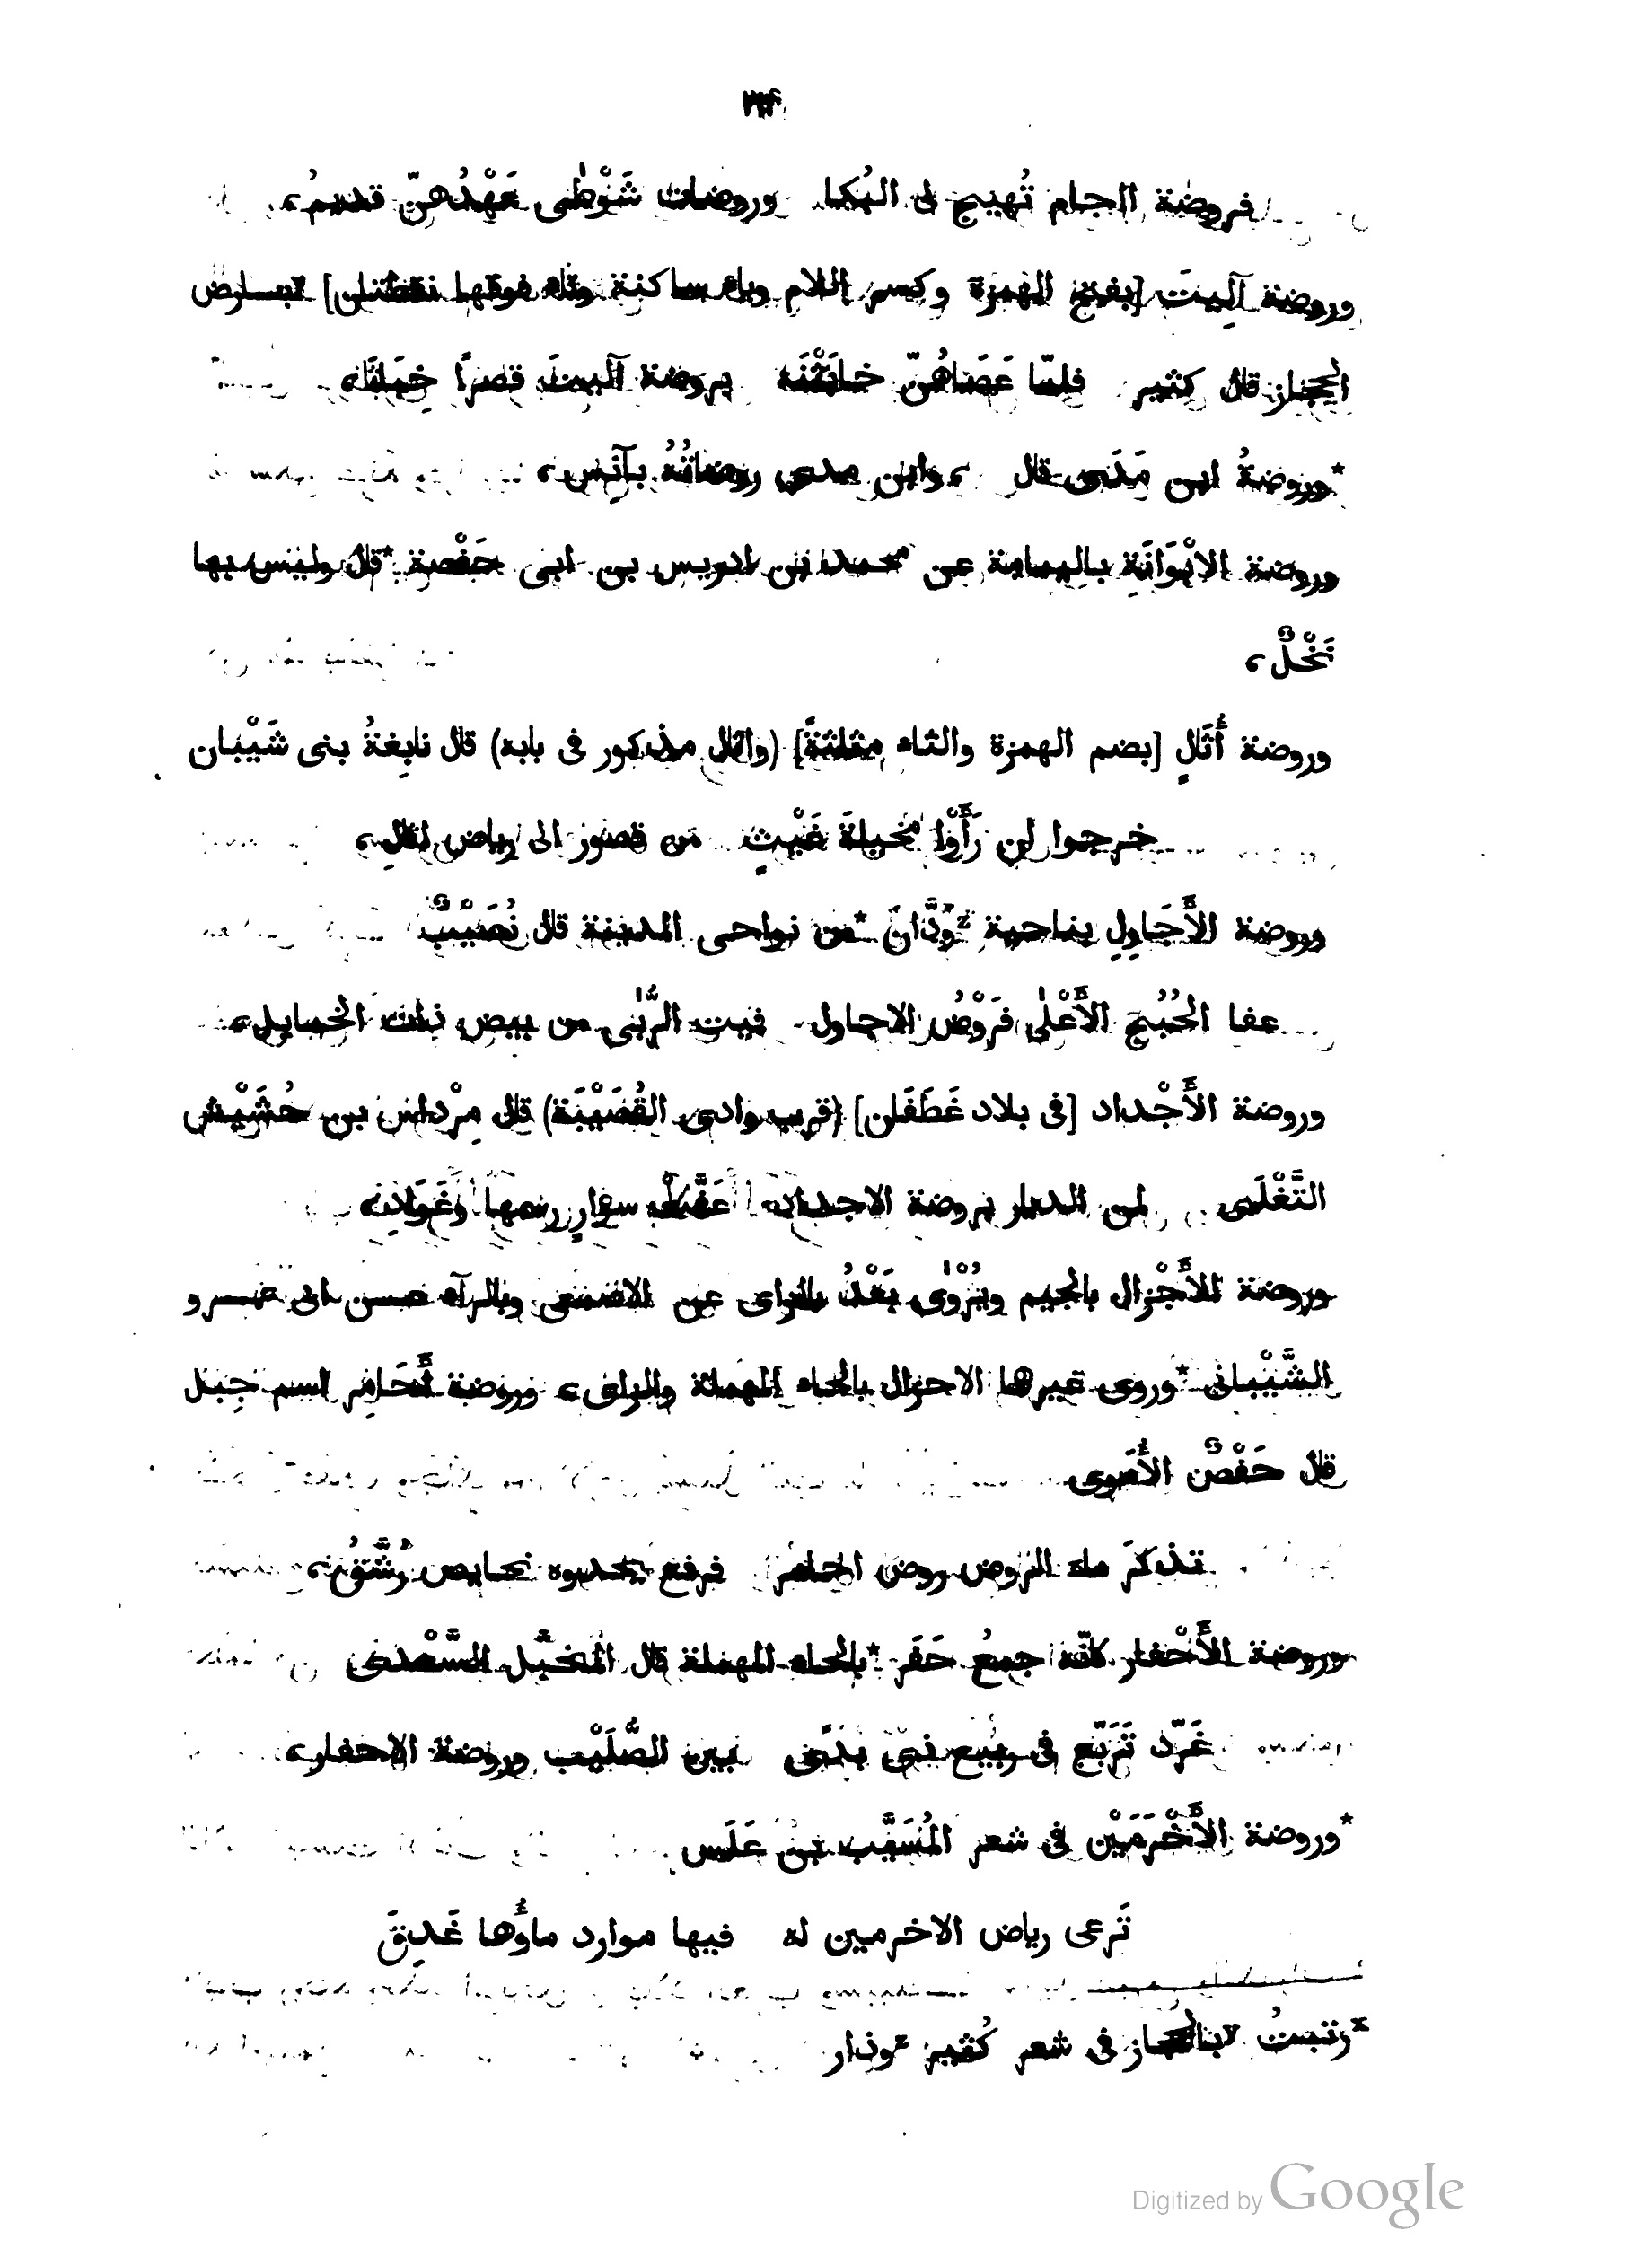 فروضة الجام تُهيج لى البُكا وروضات شَوْطٰى عَهْدُهنّ قديمُ،
وروضة آلِيتَ [بفتح الهمزة وكسر اللام وياء ساكنة وتاء فوقها نقطتان] بارض
الحجاز قال كثير فلمّا عَصَاهُنّ خابَثْنَه بروضة آليتَ قصرًا خِبَاثَا،
*وروضةُ ابن مَدَى قال، وابن مدى روضاتُهُ بآنِس،
وروضة الابْوَانَةِ باليمامة عن محمد بن ادريس بن ابى حَفْصة *قال وليس بها
نَخْلٌ،
وروضة أُثَالٍ [بضم الهمزة والثاء مثلثةً] (واثال مذكور فى بابه) قال نابِغةُ بنى شَيْبان
خرجوا ان رَأَوْا مَخيلةَ غَيْثٍ من قصور الى رياض اثالِ،
وروضة الأَجَاوِلِ بناحية وَدَّانَ *من نواحى المدينة قال نُصَيْبٌ
عفا الحُبُجُ الأَعْلٰى فَرَوْضُ الاجاول فميث الرُّبٰى من بيض ذات الخمايل،
وروضة الأَجْداد [فى بلاد غَطَفان] (قرب وادى القُصَيْبَة) قال مِرْداس بن حُشَيْش
التَّغْلَبى لمن الديار بروضة الاجداد عَفَتْ سوارٍ رسمها وغَوَادِ،
وروضة الأَجْزال بالجيم ويُرْوٰى بَعْدُ بالزاى عن الاصمعى وبالراء عن ابى عمرو
الشَّيْبانى *وروى غيرهما الاحزال بالحاء المهملة والزاى، وروضة أُحَامِر اسم جبل
قال حَفْصٌ الأُمَوى
تذكرَ ماء الروض روض احامر فرفع يحدوه نحايص
وروضة الأَحْفار كانّه جمعُ حَفَر *بالحاء المهملة قال المُخبَّل السَّعْدى
غَرّد تَرَبّع فى ربيع ذى نَدًى بين الصُّلَيْب وروضة الاحفار،
*وروضة الأَخْرَمَيْن فى شعر المُسَيَّب بن عَلَس
تَرعى رياض الاخرمين له فيها موارد ماؤُها غَدِقَ
بالحجاز فى شعر كُثير
Digitized by Google